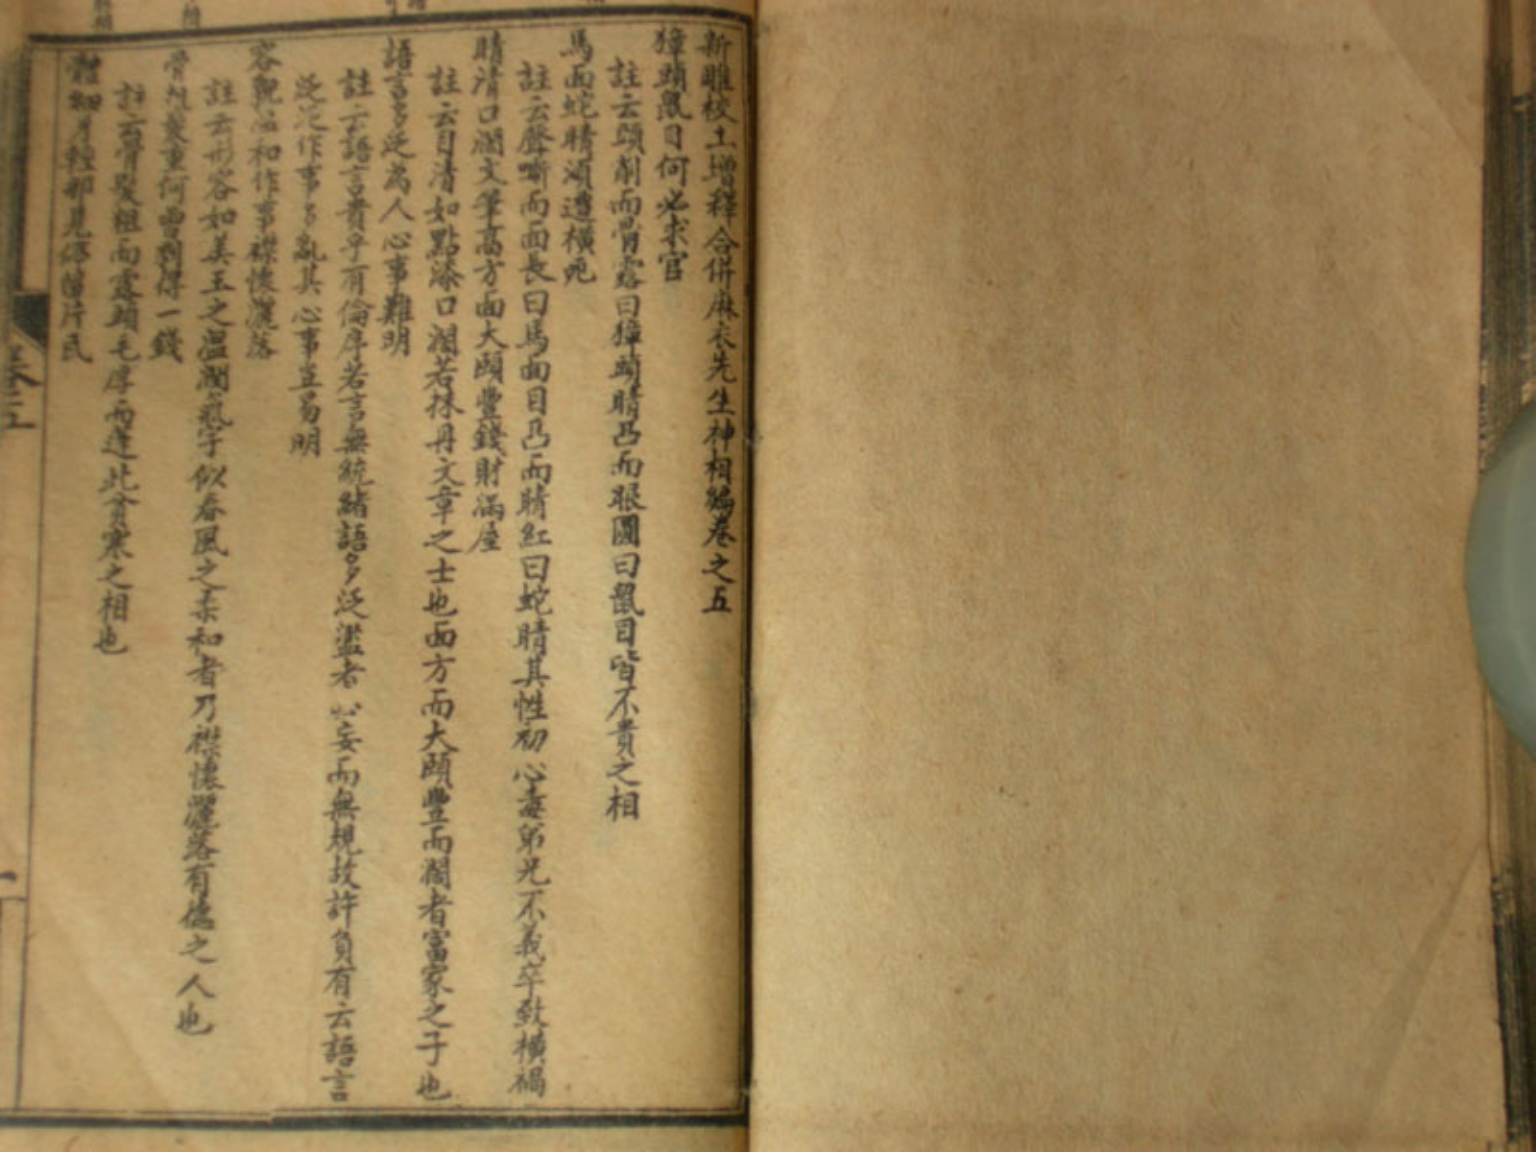 新雕校士增釋合併麻衣先生神相編卷之五
獐頭鼠目何必求官
註云頭削而骨露曰獐頭睛凸而眼圓曰鼠目皆不貴之相
馬面蛇睛須遭橫死
註云聲嘶而面長曰馬面目凸而睛紅曰蛇睛其性初心毒弟兄不義卒致橫禍
睛清口濶文筆高方面大頤豐錢財滿屋
註云目清如點漆口濶若抹丹文章之士也面方而大頤豐而濶者富家之子也
語言多泛為人心事難明
註云語言貴乎有倫序若言無統緒語多泛濫者心妄而無規故許負有云語言
泛泛作事多亂其心事豈易明
容貌溫和作事襟懷灑落
註云形容如美玉之溫潤氣宇似春風之柔和者乃襟懷灑落有德之人也
骨髮重何曾剩得一錢
註云骨髮粗而露頭毛厚而逢此貧寒之相也
體細身輕那見停留片瓦
卷五
一